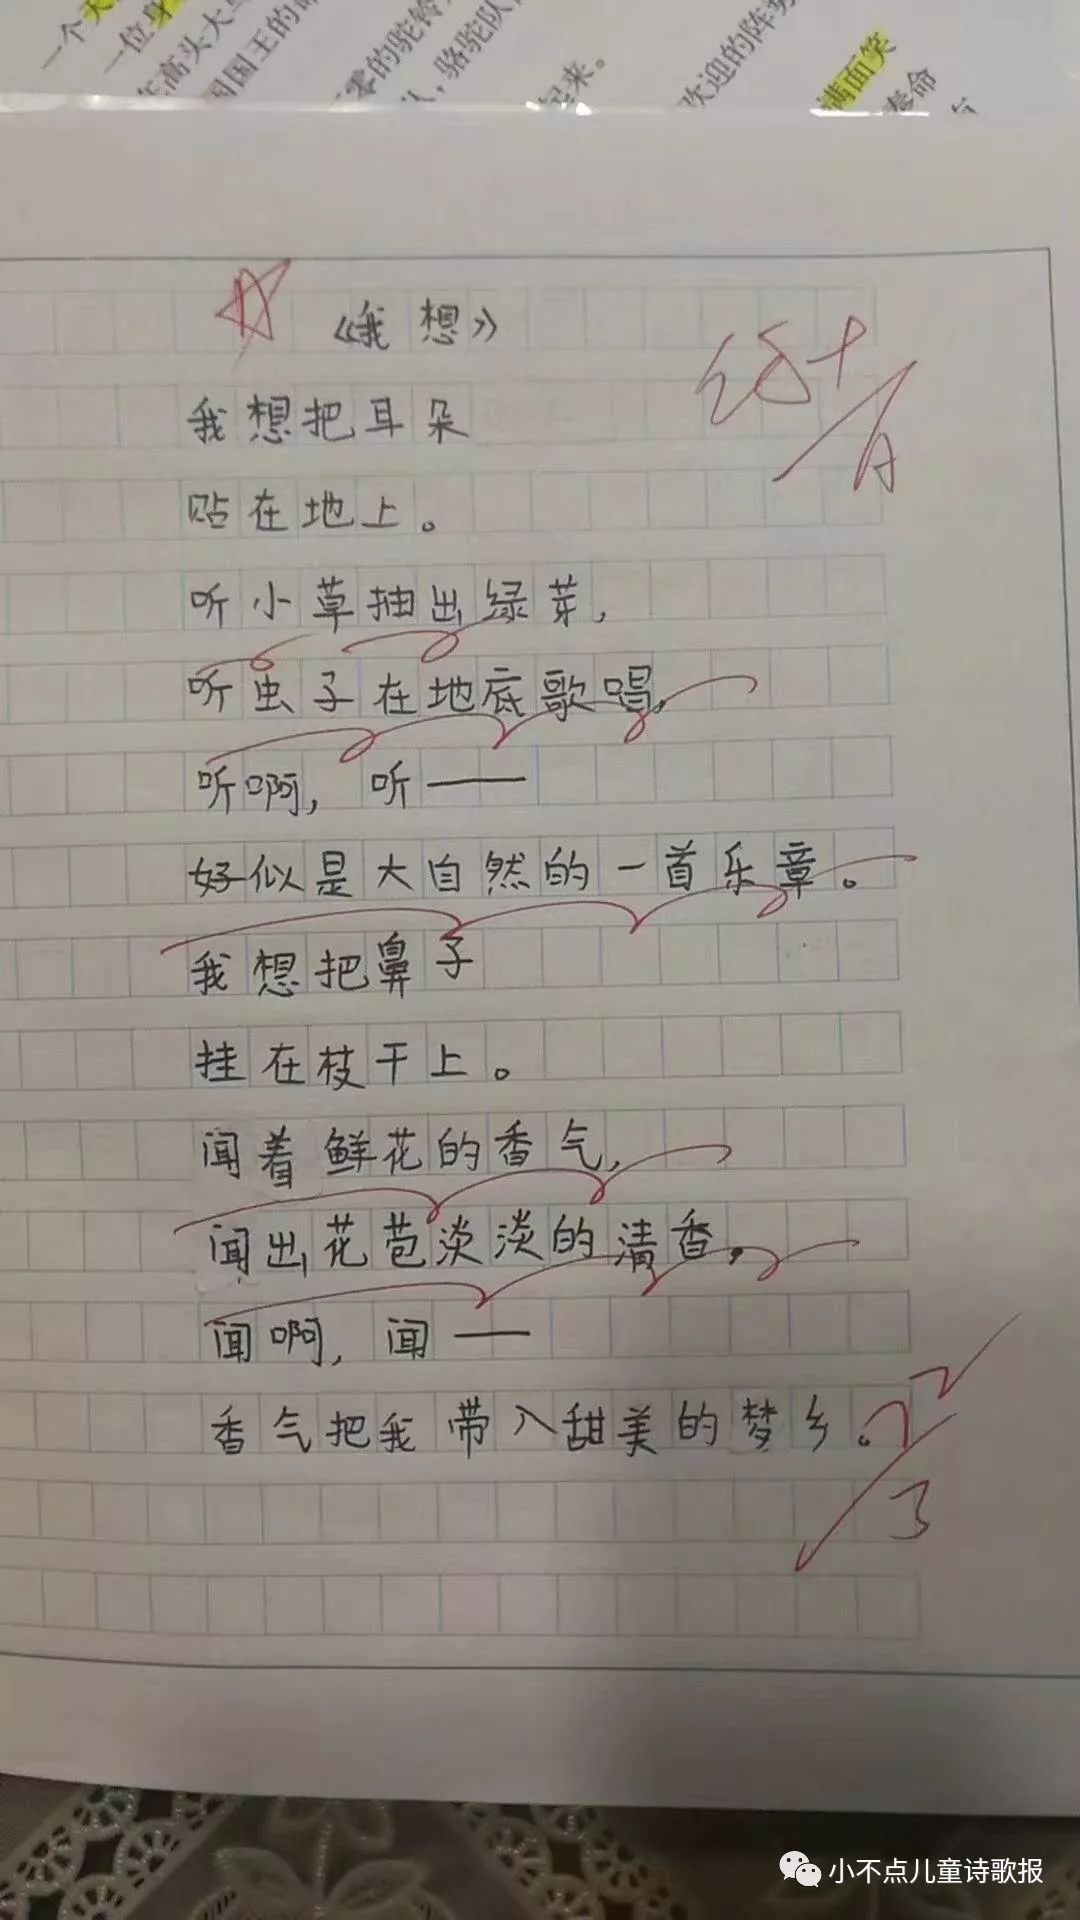 一个天
一位身
国国王的
零的驼铃
骆驼队
起来。
欢迎的阵势
满面笑
奏命
《我想》
我想把耳朵
贴在地上。
听小草抽出绿芽，
听虫子在地底歌唱，
听啊，听——
好似是大自然的一首乐章。
我想把鼻子
挂在枝干上。
闻着鲜花的香气，
闻出花苞淡淡的清香，
闻啊，闻——
香气把我带入甜美的梦乡。
小不点儿童诗歌报